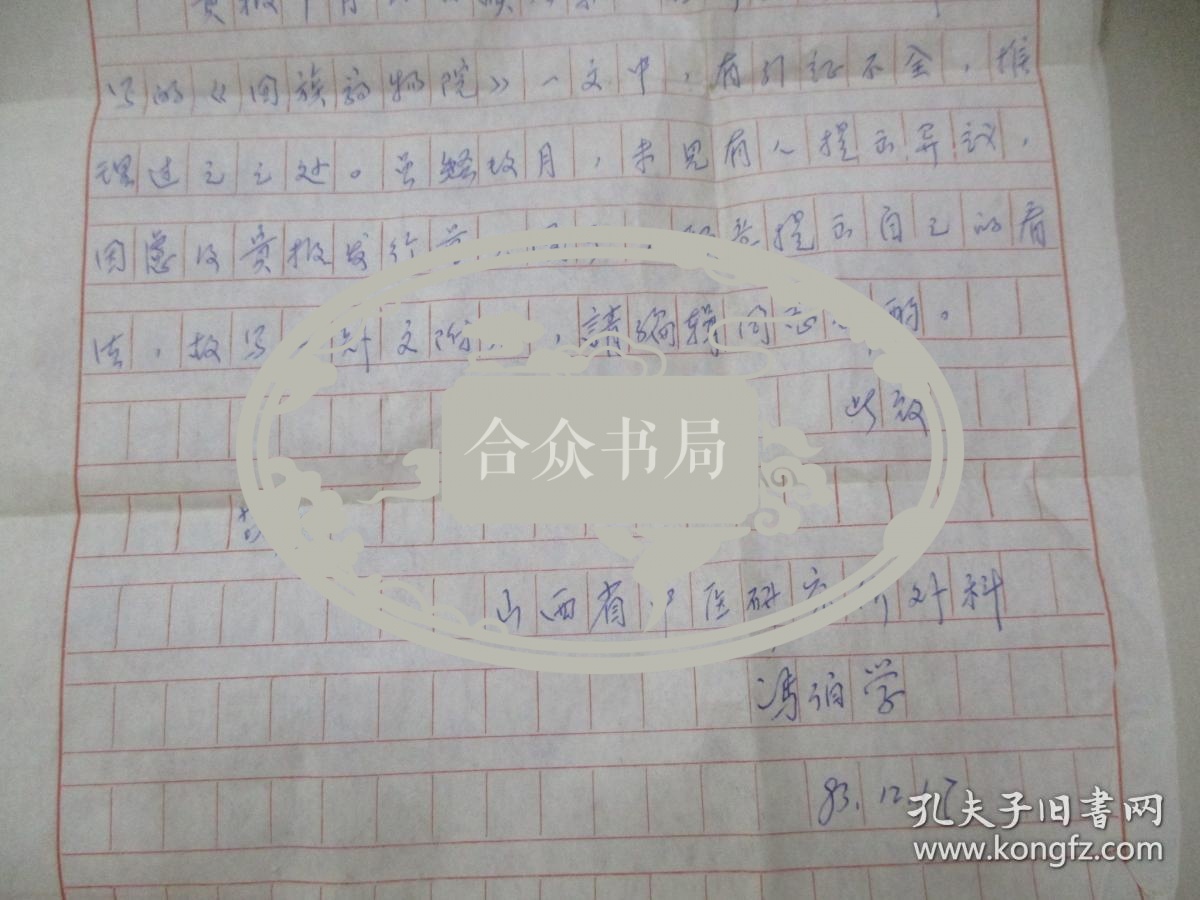 贵报
写的《回族药物院》一文中，有引证不全，推
理过之之处。虽经数月，未见有人提出异议，
因虑及贵报发行 提出自己的看
法，故写 文 ，请编辑同志 酌。
此致
合众书局
山西省中医研究所外科
冯伯学
83.12.
孔夫子旧书网
www.kongfz.com